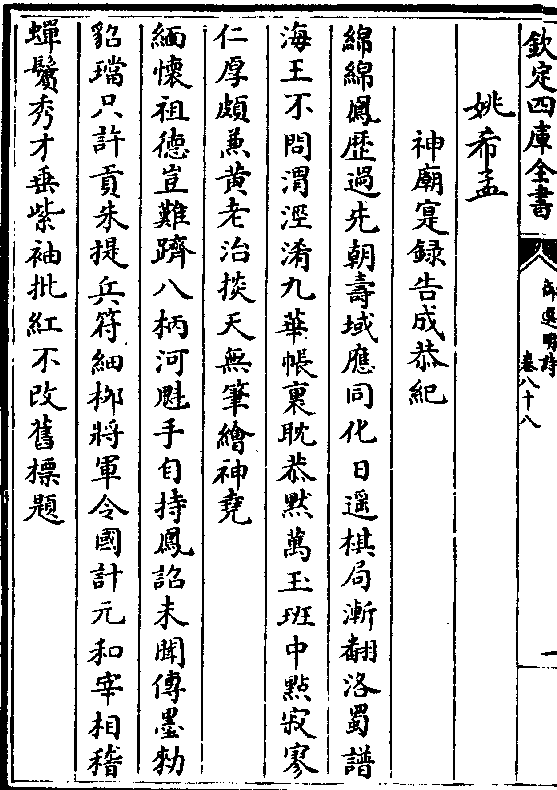 欽定四庫全書
御選明詩
卷八十八
一
姚希孟
神廟寔録告成恭紀
綿綿鳳歴過先朝壽域應同化日遥棋局漸翻洛蜀譜
海王不問渭涇淆九華帳裏耽恭黙萬玉班中點寂寥
仁厚頗兼黄老治掞天無筆繪神堯
緬懷祖德豈難躋八柄河魁手自持鳳詔未聞傳墨勅
貂璫只許貢朱提兵符細栁將軍令國計元和宰相稽
蟬鬢秀才垂紫袖批紅不改舊標題